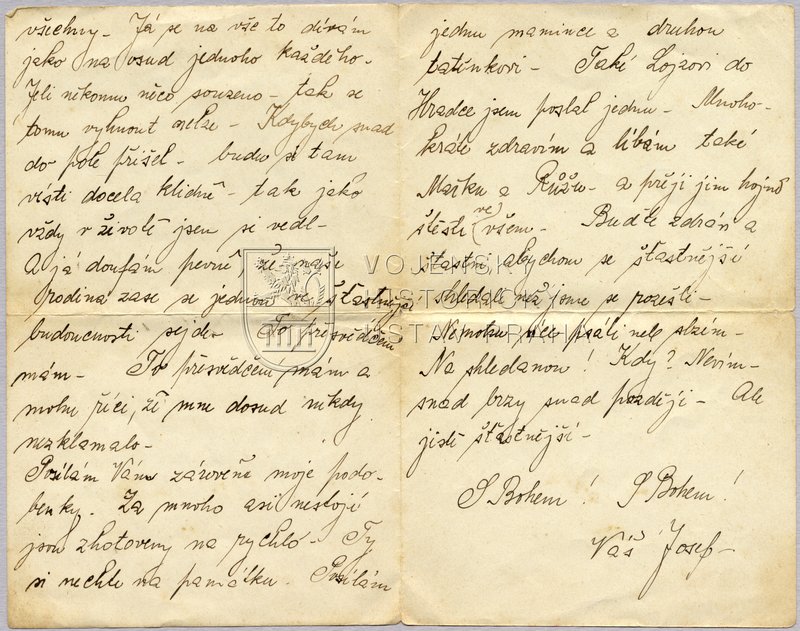 všechny - Já se na vše to dívám
jako na osud jednoho každého -
Jeli někomu něco souzeno - tak se
tomu vyhnout nelze - Kdybych snad
do pole přišel - budu si tam
vésti docela klidně - tak jako
vždy v životě jsem si vedl -
A já doufám pevně, že naše
rodina zase se jednou ve šťastnější
budoucnosti sejde - To přesvědčení
mám - To přesvědčení mám a
mohu říci, že mne dosud nikdy
nezklamalo -
Posílám Vám zároveň moje podo-
benky. Za mnoho asi nestojí
jsou zhotoveny na rychlo - Ty
si nechte na památku. Posílám
jednu mamince a druhou
tatínkovi - Také Lojzovi do
Hradce jsem poslal jednu - Mnoho-
kráte zdravím a líbám také
Mařku a Růžu - a přeji jim hojně
štěstí (ve) všem - Buďte zdrávi a
šťastni abychom se šťastnější
shledali než jsme se rozešli -
Nemohu více psáti nele slzím -
Na shledanou! Kdy? Nevím -
snad brzy snad později - Ale
jistě šťastnější -
S Bohem! S Bohem!
Váš Josef -
VOJENSKÝ
HISTORICKÝ
ÚSTAV PRAHA